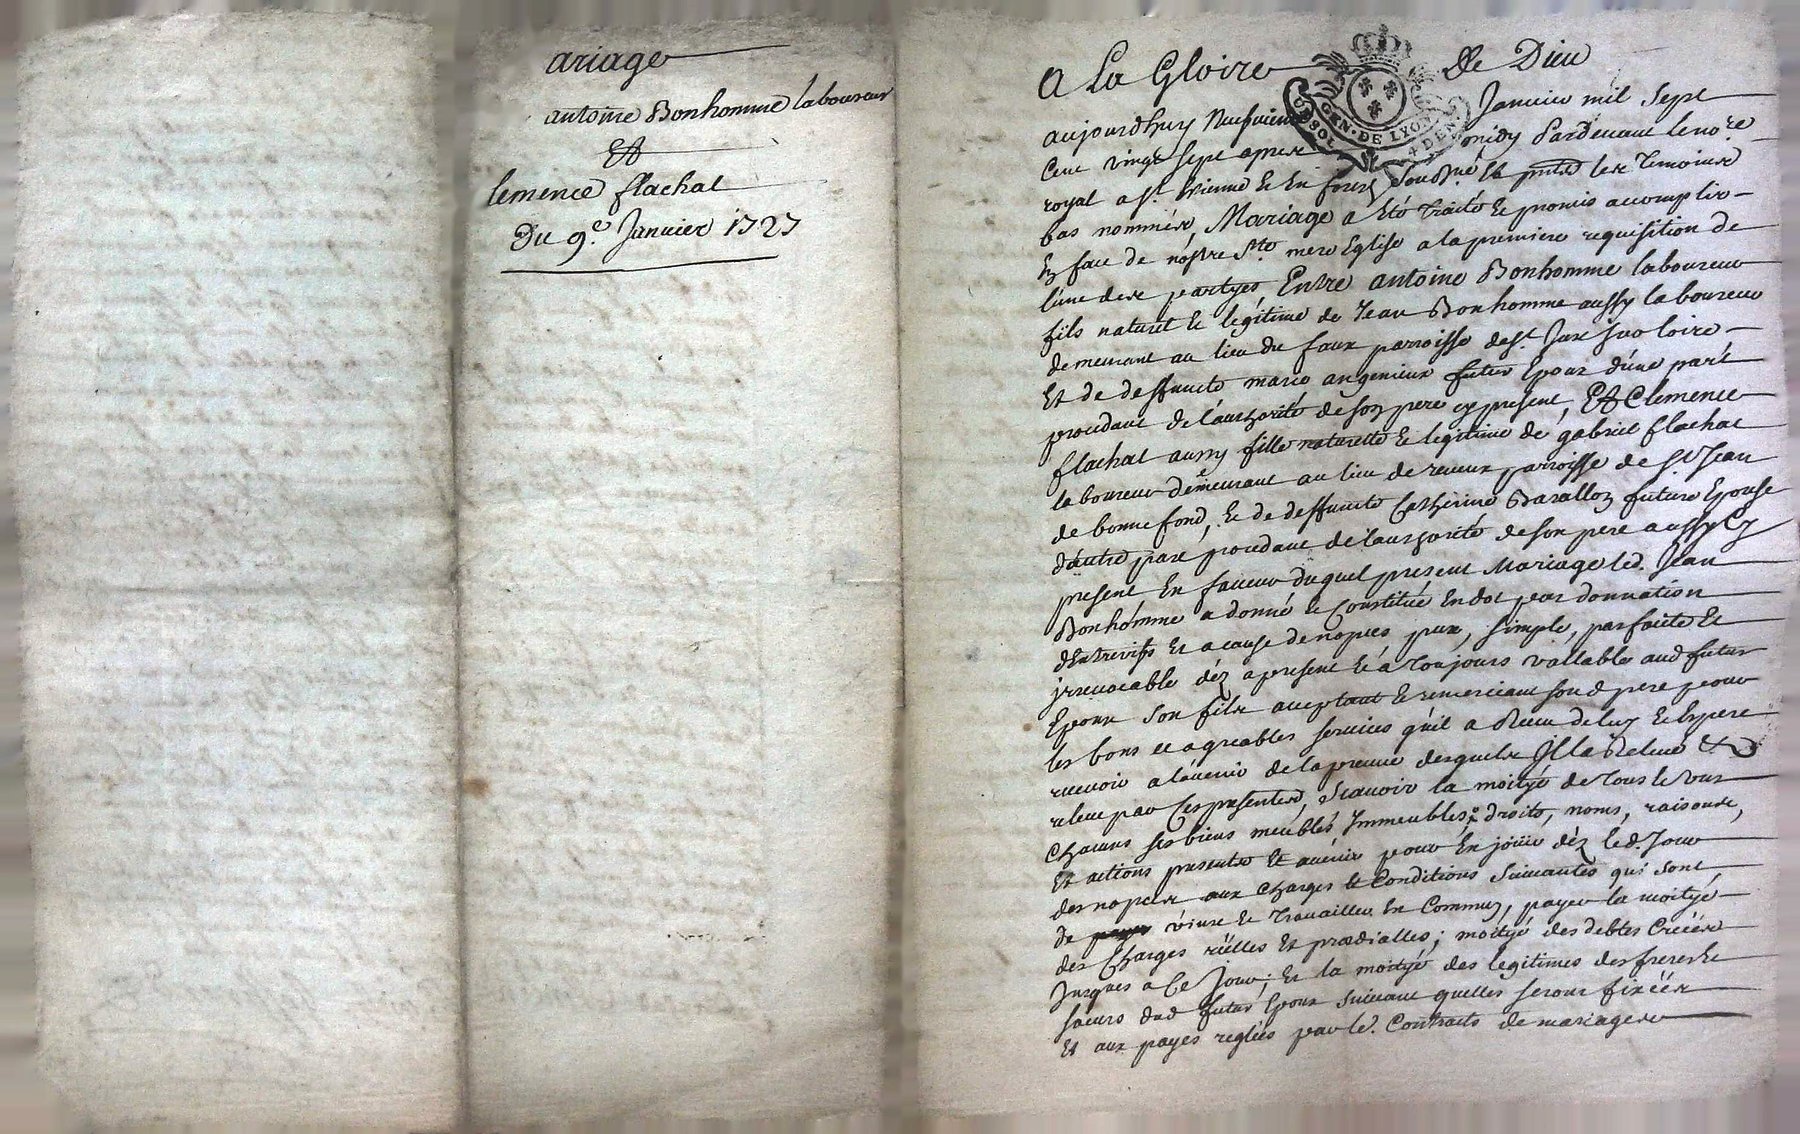 ariage
antoine Bonhomme laboureur
Et
lemence flachat
Du 9e. Janvier 1727
A La Gloire De Dieu
GEN. DE LYON
aujourdhuy Neufvieme Janvier mil sept
Cent vingt sept apres midy Pardevant le nore
royal a St. Etienne Et En forez Soussné Et pnts les Temoins
bas nommés, Mariage a Eté Traité Et promis accomplir
En face de nostre Ste. mere Eglise a la premiere requisition de
l'une des partyes Entre antoine Bonhomme laboureur
fils naturel Et legitime de Jean Bonhomme aussy laboureur
demeurant au lieu du faux parroisse de St. Just sur loire
Et de deffuncte marie angenieux futur Epoux d'une part
procedant de l'authorité de son pere cy present, Et Clemence
flachat aussy fille naturelle Et legitime de gabriel flachat
laboureur demeurant au lieu de reveux parroisse de St. Jean
de bonnefond, Et de deffuncte Catherine Barallon future Epouse
d'autre part procedant de l'authorité de son pere aussy Cy
present En faveur duquel present Mariage led. Jean
Bonhomme a donné Et Constitué En dot par donnation
d'Entrevifs Et a cause de nopces pure, simple, parfaite Et
jrrevocable déz a present Et a Toujours vallable aud futur
Epoux Son fils acceptant Et remerciant sond pere pour
les bons et agreables services qu'il a Receu de luy Et Espere
recevoir a l'avenir de la preuve desquels Jl la Releve Et
releve par Ces presentes, Scavoir la moityé de Tous Et uns
Chacuns ses biens meubles Immeubles, droits, noms, raisons,
Et actions presents Et avenir pour En joüir déz led. Jour
des nopces aux Charges Et Conditions Suivantes qui sont
de vivre Et Travailler En Commun, payer la moityé
des Charges réelles Et prædialles; moityé des debtes Créées
Jusques a Ce Jour; Et la moityé des legitimes des freres Et
soeurs dud futur Epoux Suivant quelles seront fixéés
Et aux payes reglées par led. Contracts de mariages